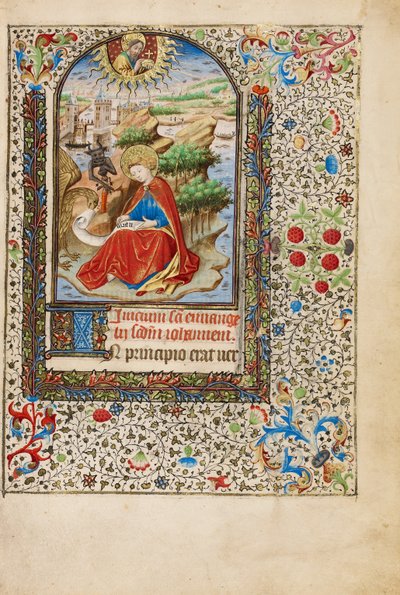 Inicium sc̄i euuange
lii scd̄m ioh̄annem.
IN principio erat uer